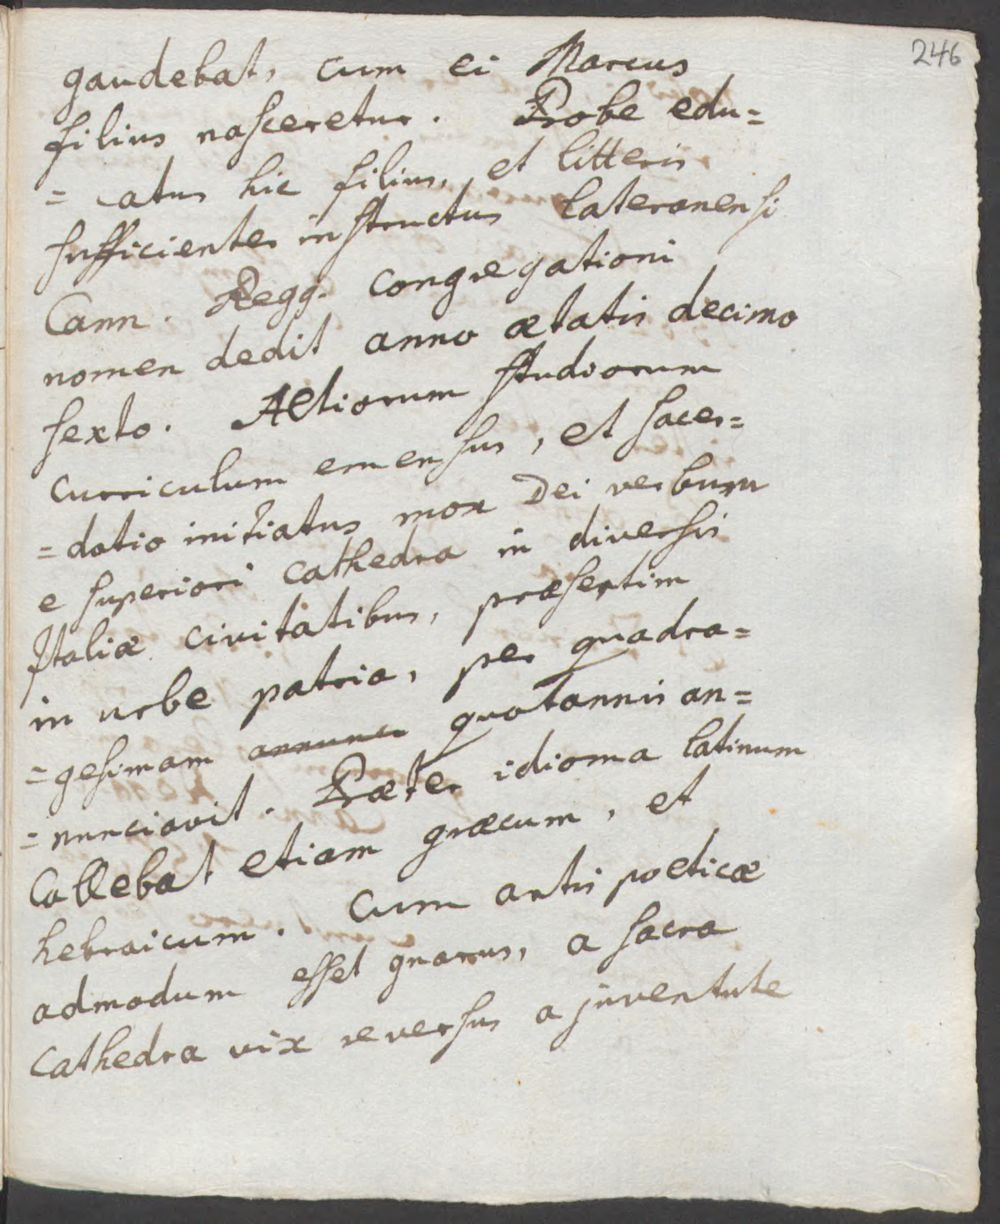 246
gaudebat, cum ei Marcus
filius nasceretur. Probe edu=
=catus hic filius, et litteris
sufficienter instructus Lateranensi
Cann. Regg. congregationi
nomen dedit anno ætatis decimo
sexto. Altiorum studiorum
curriculum emensus, et sacer=
=dotio initiatus mox Dei verbum
e superiori cathedra in diversis
Italiæ civitatibus, præsertim
in urbe patria, per quadra=
=gesimam quotannis an=
=nunciavit. Præter idioma latinum
Callebat etiam græcum, et
hebraicum. Cum artis poeticæ
admodum esset gnarus, a sacra
cathedra vix reversus a juventute